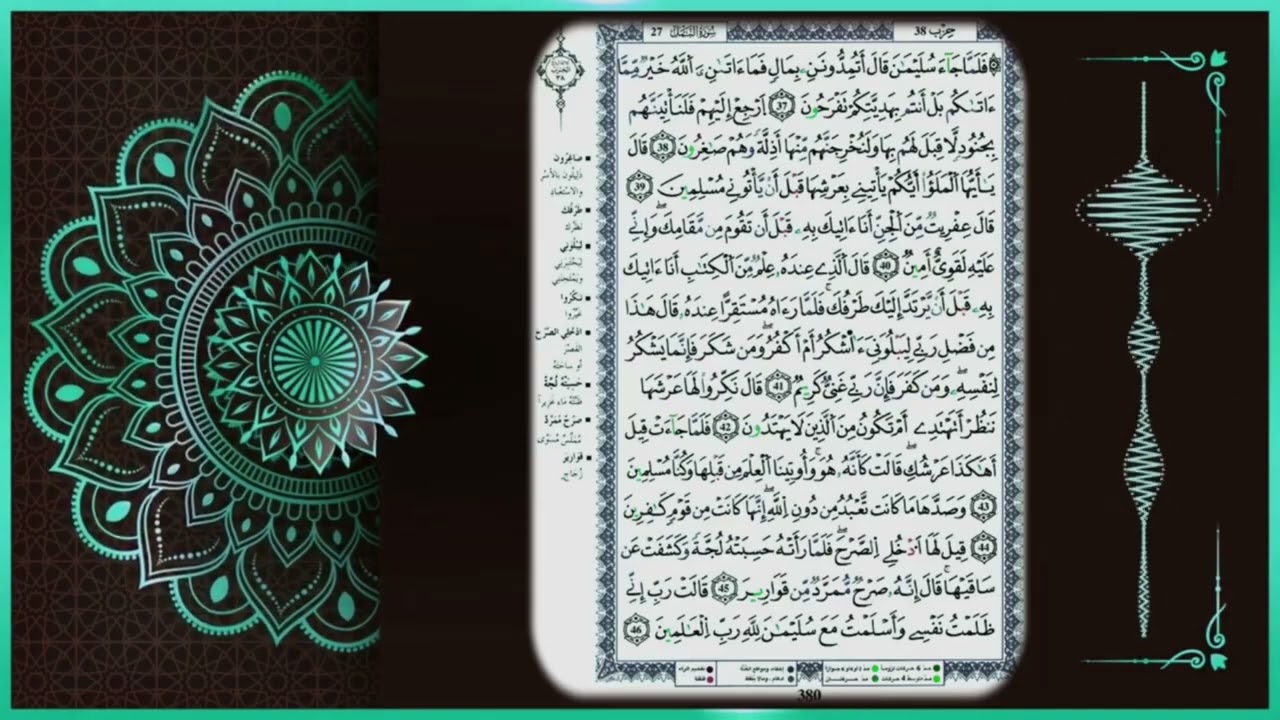 حِزْب 38
سُورَةُ النَّمْلِ 27
۞ فَلَمَّا جَآءَ سُلَيْمَٰنَ قَالَ أَتُمِدُّونَنِۦ بِمَالٍ فَمَآ ءَاتَىٰنِۦَ اَللَّهُ خَيْرٌ مِّمَّآ
ءَاتَىٰكُم بَلْ أَنتُم بِهَدِيَّتِكُمْ تَفْرَحُونَ 37 اَرْجِعِ اِلَيْهِمْ فَلَنَأْتِيَنَّهُم
بِجُنُودٍ لَّا قِبَلَ لَهُم بِهَا وَلَنُخْرِجَنَّهُم مِّنْهَآ أَذِلَّةً وَهُمْ صَٰغِرُونَ 38 قَالَ
يَٰٓأَيُّهَا اَلْمَلَؤُا أَيُّكُمْ يَأْتِينِے بِعَرْشِهَا قَبْلَ أَنْ يَّأْتُونِے مُسْلِمِينَ 39
قَالَ عِفْرِيتٌ مِّنَ اَلْجِنِّ أَنَآ ءَاتِيكَ بِهِۦ قَبْلَ أَن تَقُومَ مِن مَّقَامِكَ وَإِنِّے
عَلَيْهِ لَقَوِىٌّ أَمِينٌ 40 قَالَ اَلَّذِے عِندَهُۥ عِلْمٌ مِّنَ اَلْكِتَٰبِ أَنَآ ءَاتِيكَ
بِهِۦ قَبْلَ أَنْ يَّرْتَدَّ إِلَيْكَ طَرْفُكَ فَلَمَّا رَءَاهُ مُسْتَقِرًّا عِندَهُۥ قَالَ هَٰذَا
مِن فَضْلِ رَبِّے لِيَبْلُوَنِىَ ءَآشْكُرُ أَمْ أَكْفُرُ وَمَن شَكَرَ فَإِنَّمَا يَشْكُرُ
لِنَفْسِهِۦ وَمَن كَفَرَ فَإِنَّ رَبِّے غَنِىٌّ كَرِيمٌ 41 قَالَ نَكِّرُوا لَهَا عَرْشَهَا
نَنظُرَ أَتَهْتَدِے أَمْ تَكُونُ مِنَ اَلَّذِينَ لَا يَهْتَدُونَ 42 فَلَمَّا جَآءَتْ قِيلَ
أَهَٰكَذَا عَرْشُكِ قَالَتْ كَأَنَّهُۥ هُوَ وَأُوتِينَا اَلْعِلْمَ مِن قَبْلِهَا وَكُنَّا مُسْلِمِينَ
43 وَصَدَّهَا مَا كَانَت تَّعْبُدُ مِن دُونِ اِللَّهِ إِنَّهَا كَانَتْ مِن قَوْمٍ كَٰفِرِينَ
44 قِيلَ لَهَا اَدْخُلِے اِلصَّرْحَ فَلَمَّا رَأَتْهُ حَسِبَتْهُ لُجَّةً وَكَشَفَتْ عَن
سَاقَيْهَا قَالَ إِنَّهُۥ صَرْحٌ مُّمَرَّدٌ مِّن قَوَارِيرَ 45 قَالَتْ رَبِّ إِنِّے
ظَلَمْتُ نَفْسِے وَأَسْلَمْتُ مَعَ سُلَيْمَٰنَ لِلهِ رَبِّ اِلْعَٰلَمِينَ 46
صَاغِرُون
ذَلِيلُون بِالأَسْرِ
وَالاسْتِعْبَادِ
طَرْفُكَ
نَظَرُكَ
لِيَبْلُوَنِي
لِيَخْتَبِرَنِي
وَيَمْتَحِنَنِي
نَكِّرُوا
غَيِّرُوا
ادْخُلِي الصَّرْحَ
القَصْرَ
أو سَاحَتَهُ
حَسِبَتْهُ لُجَّةً
ظَنَّتْهُ مَاءً غَزِيراً
صَرْحٌ مُمَرَّدٌ
مُمَلَّسٌ مُسَوّى
قَوَارِيرَ
زُجَاجٍ
380